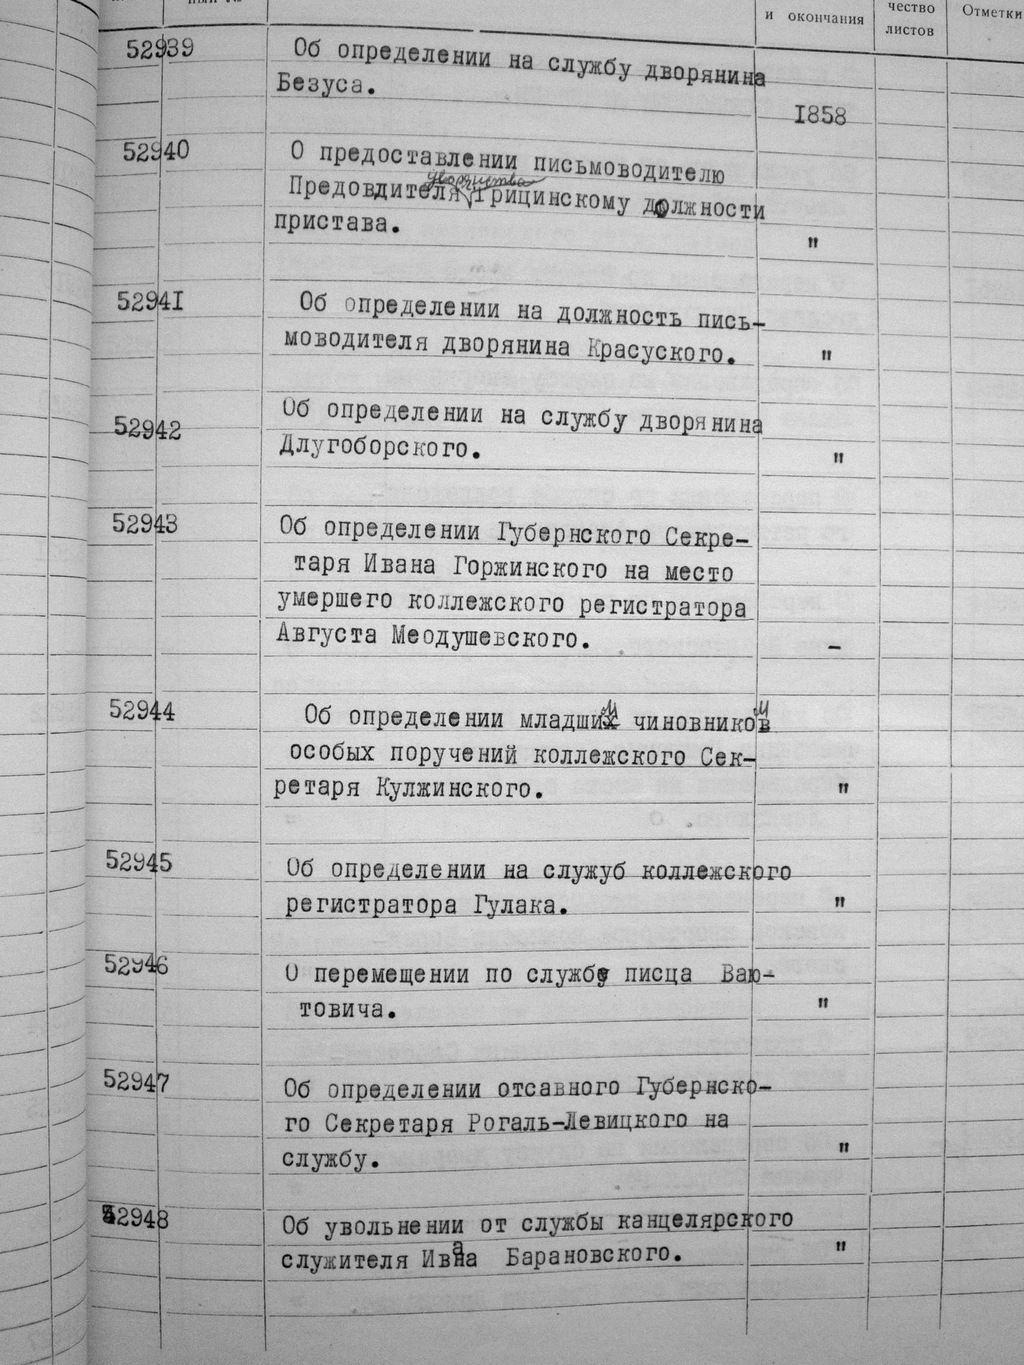 и окончания
чество
листов
Отметки
52939
Об определении на службу дворянина
Безуса.
1858
52940
О предоставлении письмоводителю
дворянства
Предовдителя Грицинскому должности
пристава.
"
52941
Об определении на должность пись-
моводителя дворянина Красуского.
"
52942
Об определении на службу дворянина
Длугоборского.
"
52943
Об определении Губернского Секре-
таря Ивана Горжинского на место
умершего коллежского регистратора
Августа Меодушевского.
-
52944
Об определении младшим чиновником
особых поручений коллежского Сек-
ретаря Кулжинского.
"
52945
Об определении на служуб коллежского
регистратора Гулака.
"
52946
О перемещении по службе писца Ваю-
товича.
"
52947
Об определении отсавного Губернско-
го Секретаря Рогаль-Левицкого на
службу.
"
52948
Об увольнении от службы канцелярского
служителя Ивана Барановского.
"